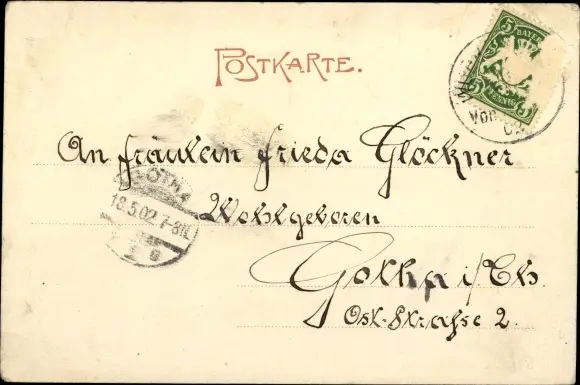 POSTKARTE.
5 BAYERN
PFENNIG 5
An Fräulein Frieda Glöckner
GOTHA
18.5.02. 7-8N.
Wohlgeboren
Gotha i/Th.
Ost-Straße 2.